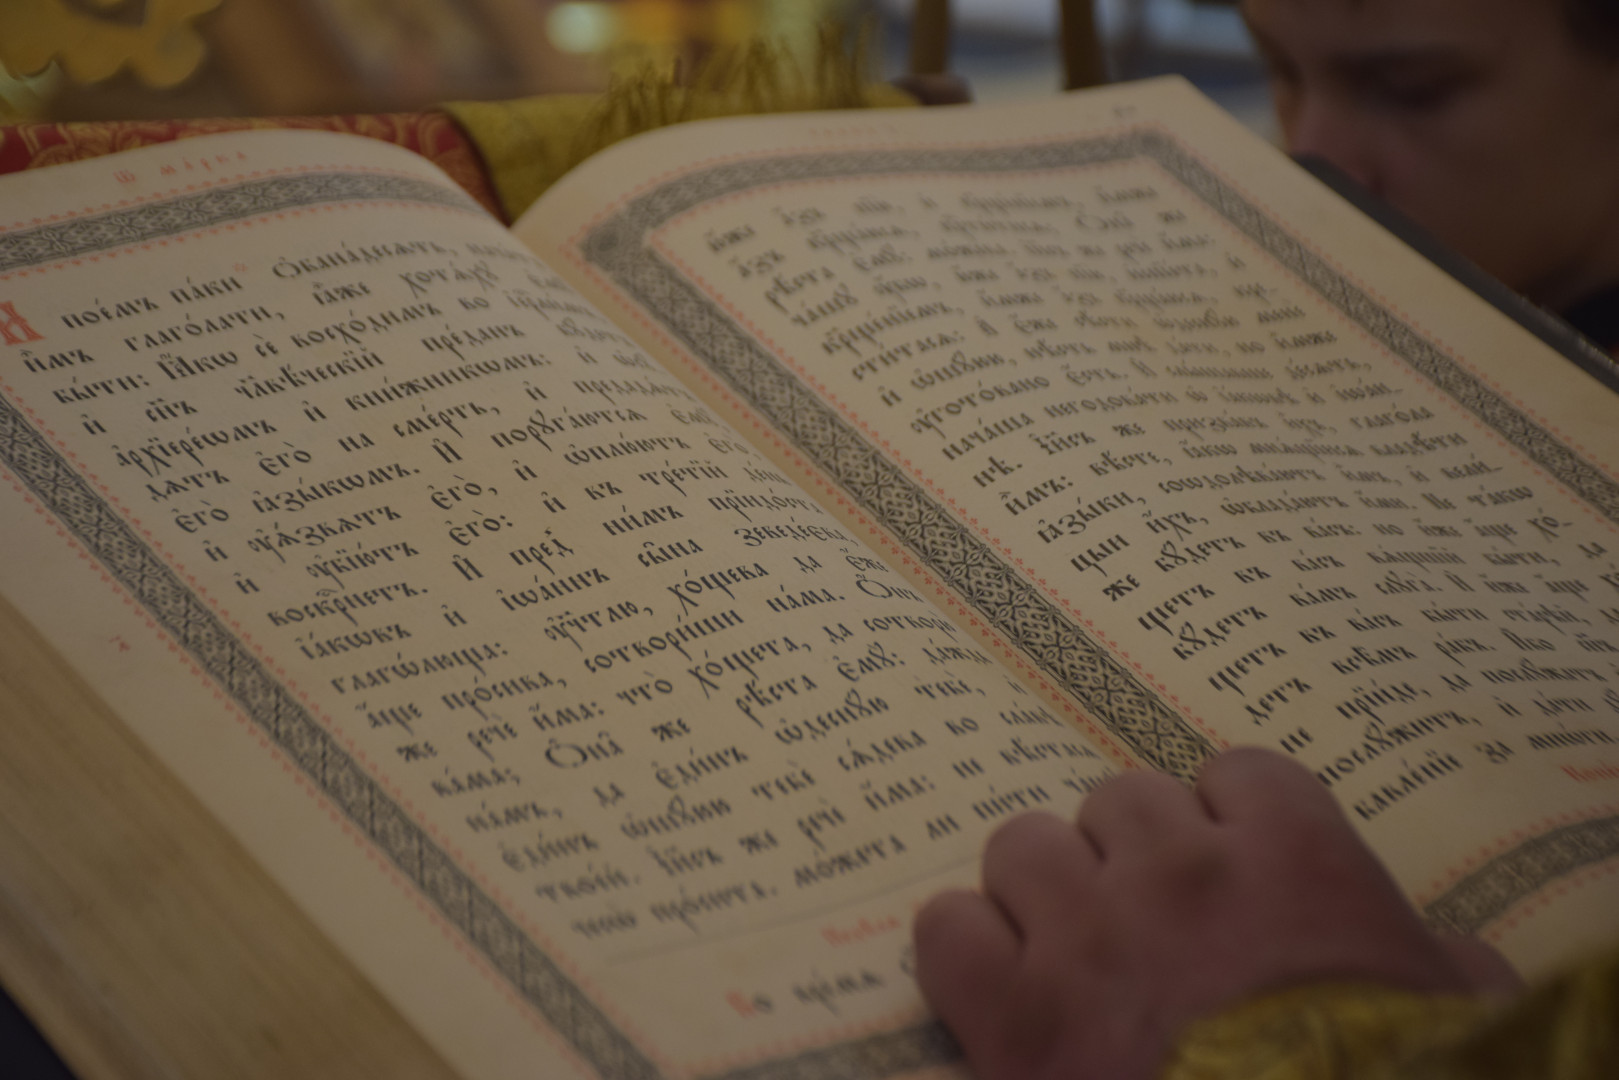 Ѿ ма́рка
И пое́мъ па́ки Ѻ҆бана́десѧть, нача́тъ
и҆̀мъ глаго́лати, ꙗ҆̀же хотѧ́хꙋ є҆мꙋ̀
бы́ти: Ꙗ҆́кѡ сѐ восхо́димъ во і҆ерⷭ҇ли́мъ
и҆ сн҃ъ чл҃вѣ́ческїй пре́данъ бꙋ́детъ
а҆рхїере́ѡмъ и҆ кни́жникѡмъ: и҆ ѡ҆сꙋ́-
дѧтъ є҆го̀ на сме́рть, и҆ предадѧ́тъ
є҆го̀ ꙗ҆зы́кѡмъ. И҆ порꙋга́ютсѧ є҆мꙋ̀,
и҆ ᲂу҆ѧ́звѧтъ є҆го̀, и҆ ѡ҆плю́ютъ є҆го̀
и҆ ᲂу҆бїю́тъ є҆го̀: и҆ въ тре́тїй де́нь
воскре́снетъ. И҆ пред̾ ни́мъ прїидо́ста
ꙗ҆́кѡвъ и҆ і҆ѡа́ннъ сы̑на зеведе́ѡва,
глагѡ́люща: ᲂу҆чт҃лю, хо́щева да є҆́же
а҆́ще про́сива, сотвори́ши на́ма. Ѻ҆́нъ
же речѐ и҆́ма: что̀ хо́щета, да сотворю̀
ва́ма; Ѻ҆́на же рѣ́ста є҆мꙋ̀: да́ждь
на́мъ, да є҆ди́нъ ѡ҆деснꙋ́ю тебѐ, и҆
є҆ди́нъ ѡ҆шꙋ́юю тебѐ сѧ́дева во сла́вѣ
твое́й. І҆и҃съ же речѐ и҆́ма: не вѣ́ста
чесѡ̀ про́сита. мо́жета ли пи́ти ча́шꙋ
Во вре́мѧ
ю҆́же а҆́зъ пїю̀, и҆ креще́нїемъ, и҆́мже
а҆́зъ креща́юсѧ, крести́тисѧ; Ѻ҆́на же
рѣ́ста є҆мꙋ̀: мо́жева. І҆и҃съ же речѐ и҆́ма:
ча́шꙋ ᲂу҆́бѡ, ю҆́же а҆́зъ пїю̀, испїе́та, и҆
креще́нїемъ, и҆́мже а҆́зъ креща́юсѧ, кре-
сти́тасѧ: А҆ є҆́же сѣ́сти ѡ҆деснꙋ́ю менє̀
и҆ ѡ҆шꙋ́юю, нѣ́сть мнѣ̀ да́ти, но и҆́мже
ᲂу҆гото́вано є҆́сть. И҆ слы́шавше де́сѧть,
нача́ша негодова́ти ѡ҆ ꙗ҆́кѡвѣ и҆ і҆ѡа́н-
нѣ. І҆и҃съ же призва́въ и҆̀хъ, глаго́ла
и҆̀мъ: вѣ́сте, ꙗ҆́кѡ мнѧ́щїисѧ владѣ́ти
ꙗ҆зы́ки, соѡдолѣва́ютъ и҆̀мъ, и҆ вели́-
цыи и҆́хъ, ѡ҆блада́ютъ и҆́ми. Не та́кѡ
же бꙋ́детъ въ ва́съ: но и҆́же а҆́ще хо́-
щетъ въ ва́съ вѧ́щшїй бы́ти, да
бꙋ́детъ ва́мъ слꙋга̀. И҆ и҆́же а҆́ще хо́-
щетъ въ ва́съ бы́ти ста́рѣй, да бꙋ́-
детъ всѣ̑мъ ра́бъ. И҆́бо сн҃ъ
не прїи́де, да послꙋ́жатъ
послꙋ́житъ, и҆ да́ти
бавле́нїе за мно́ги.